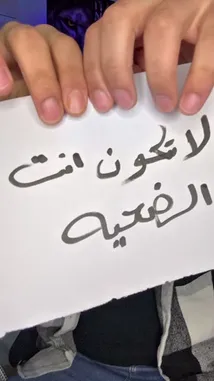 لا تكون انت
الضحيه